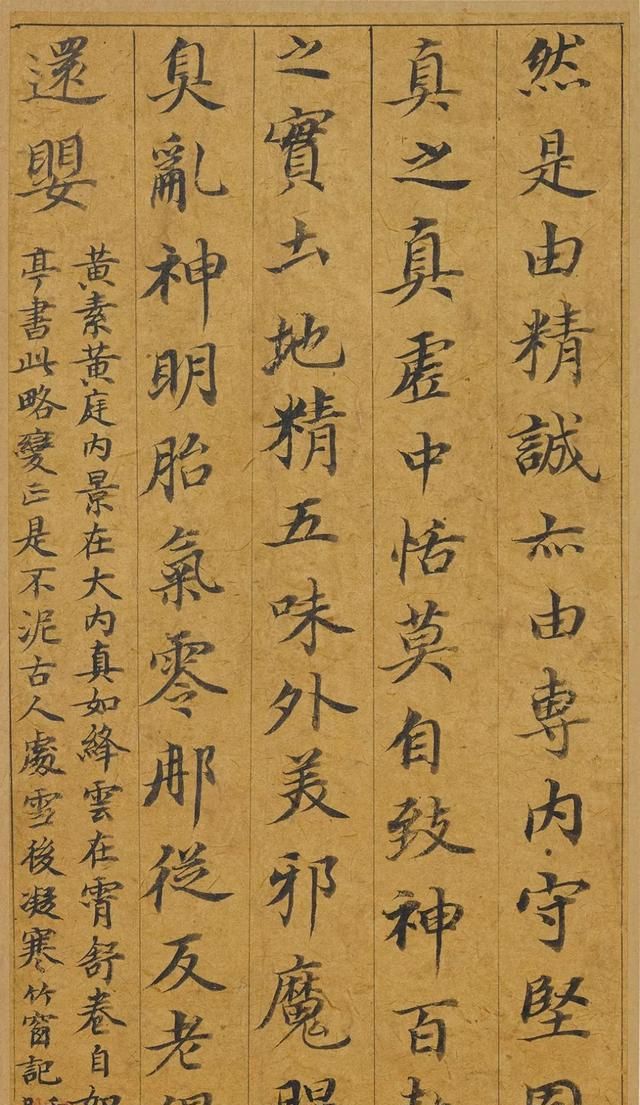 然是由精誠亦由專內守堅固
真之真虛中恬莫自致神百
之實土地精五味外美邪魔
臭亂神明胎氣零那從反老
還嬰
黃素黃庭內景在大內真如絳雲在霄舒卷自如
亭書此略變正是不泥古人處雪後凝寒竹窗記